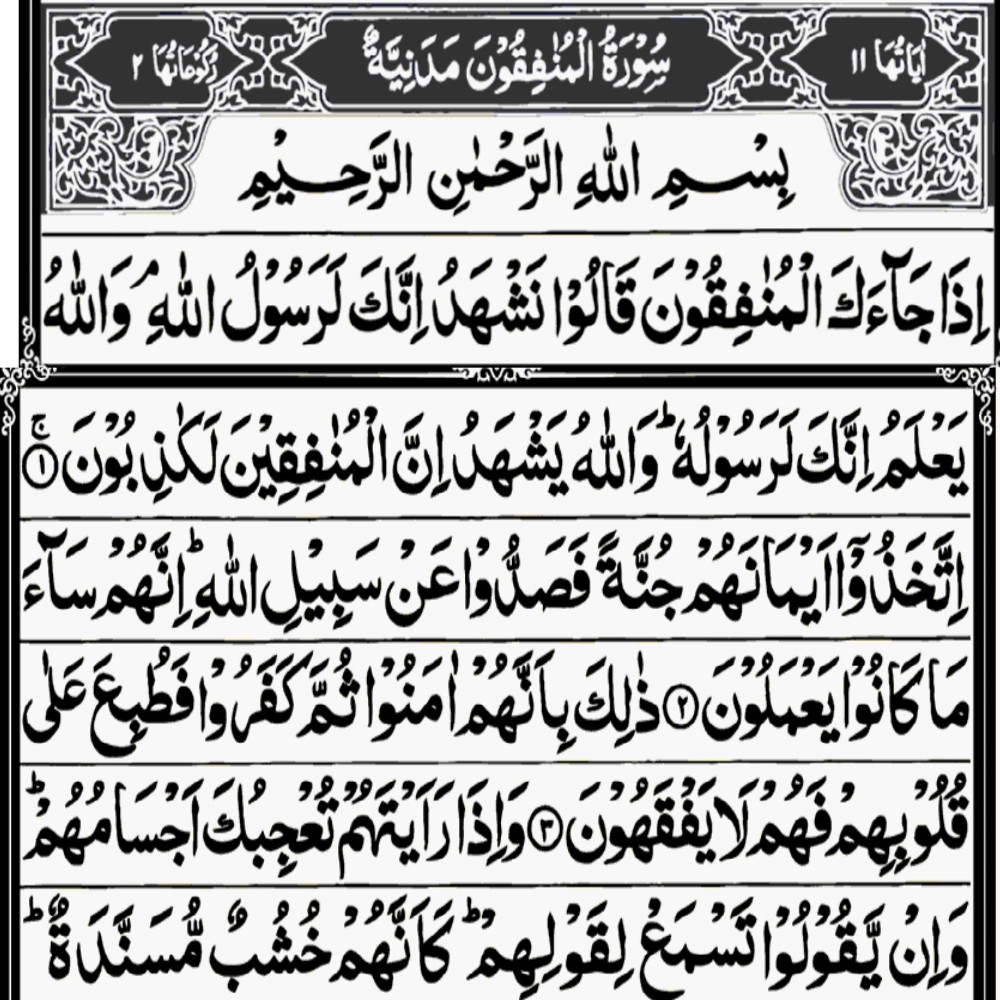 اٰیَاتُهَا ۱۱ سُوْرَةُ الْمُنٰفِقُوْنَ مَدَنِیَّةٌ رُكُوْعَاتُهَا ۲
بِسْمِ اللّٰهِ الرَّحْمٰنِ الرَّحِیْمِ
اِذَا جَآءَكَ الْمُنٰفِقُوْنَ قَالُوْا نَشْهَدُ اِنَّكَ لَرَسُوْلُ اللّٰهِ ۘ وَاللّٰهُ
یَعْلَمُ اِنَّكَ لَرَسُوْلُهٗ ؕ وَاللّٰهُ یَشْهَدُ اِنَّ الْمُنٰفِقِیْنَ لَكٰذِبُوْنَ ۚ ۱
اِتَّخَذُوْۤا اَیْمَانَهُمْ جُنَّةً فَصَدُّوْا عَنْ سَبِیْلِ اللّٰهِ ؕ اِنَّهُمْ سَآءَ
مَا كَانُوْا یَعْمَلُوْنَ ۲ ذٰلِكَ بِاَنَّهُمْ اٰمَنُوْا ثُمَّ كَفَرُوْا فَطُبِعَ عَلٰی
قُلُوْبِهِمْ فَهُمْ لَا یَفْقَهُوْنَ ۳ وَاِذَا رَاَیْتَهُمْ تُعْجِبُكَ اَجْسَامُهُمْ ؕ
وَاِنْ یَّقُوْلُوْا تَسْمَعْ لِقَوْلِهِمْ ؕ كَاَنَّهُمْ خُشُبٌ مُّسَنَّدَةٌ ؕ